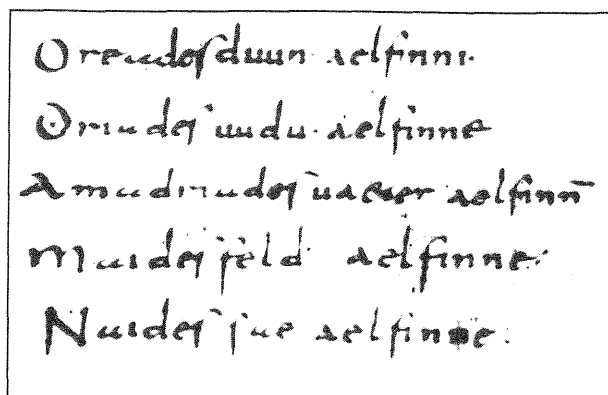 Oreades duun aelfinni.
Driades uudu. aelfinne
Amadriades uaeter aelfinn̄
Maides feld aelfinne.
Naides sae aelfinne.